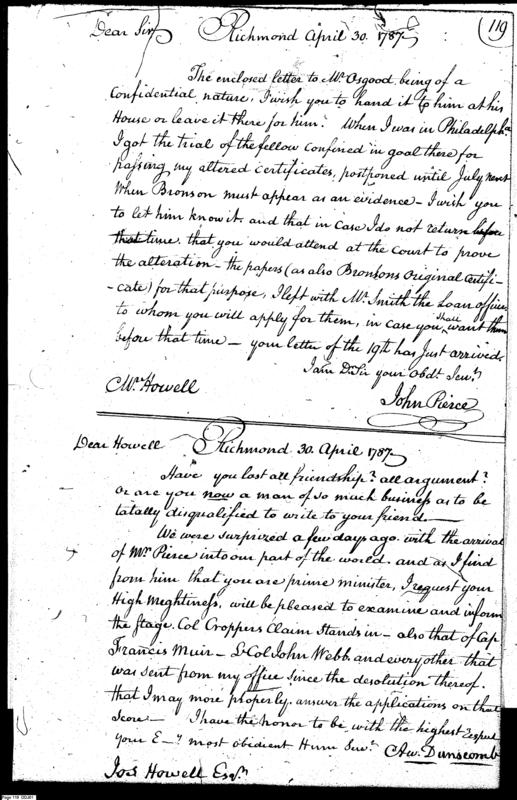 119
Dear Sir Richmond April 30. 1787
The enclosed letter to Mr. Osgood being of a
Confidential nature, I wish you to hand it to him at his
House or leave it there for him. When I was in Philadelpha
I got the trial of the fellow confined in goal there for
passing my altered certificates, postponed until July next
When Bronson must appear as an evidence – I wish you
to let him know it, and that in case I do not return before
that time, that you would attend at the Court to prove
the alteration – the papers (as also Bronsons Original Certifi-
-cate) for that purpose, I left with Mr. Smith the Loan officer
to whom you will apply for them, in case you shall want them
before that time – your letter of the 19th has Just arrived
I am D Sir your Obdt Servt
Mr. Howell
John Pierce
Dear Howell Richmond 30. April 1787
Have you lost all friendship? all argument?
or are you now a man of so much business as to be
totally disqualified to write to your friend. –
We were surprized a few days ago. with the arrival
of Mr. Pierce into our part of the world. and as I find
from him that you are prime minister, I request your
High Meghtiness, will be pleased to examine and inform
the Stage. Col Croppers Claim Stands in – also that of Cap
Francis Muir – Lt Col John Webb, and every other that
was sent from my office since the desolution thereof.
that I may more properly. answer the applications on that
Score – I have the honor to be, with the highest respect
your E–y most obedient Hum Servt. Aw. Dunscomb
Jos Howell Esqr.
Page 119 DDJ01